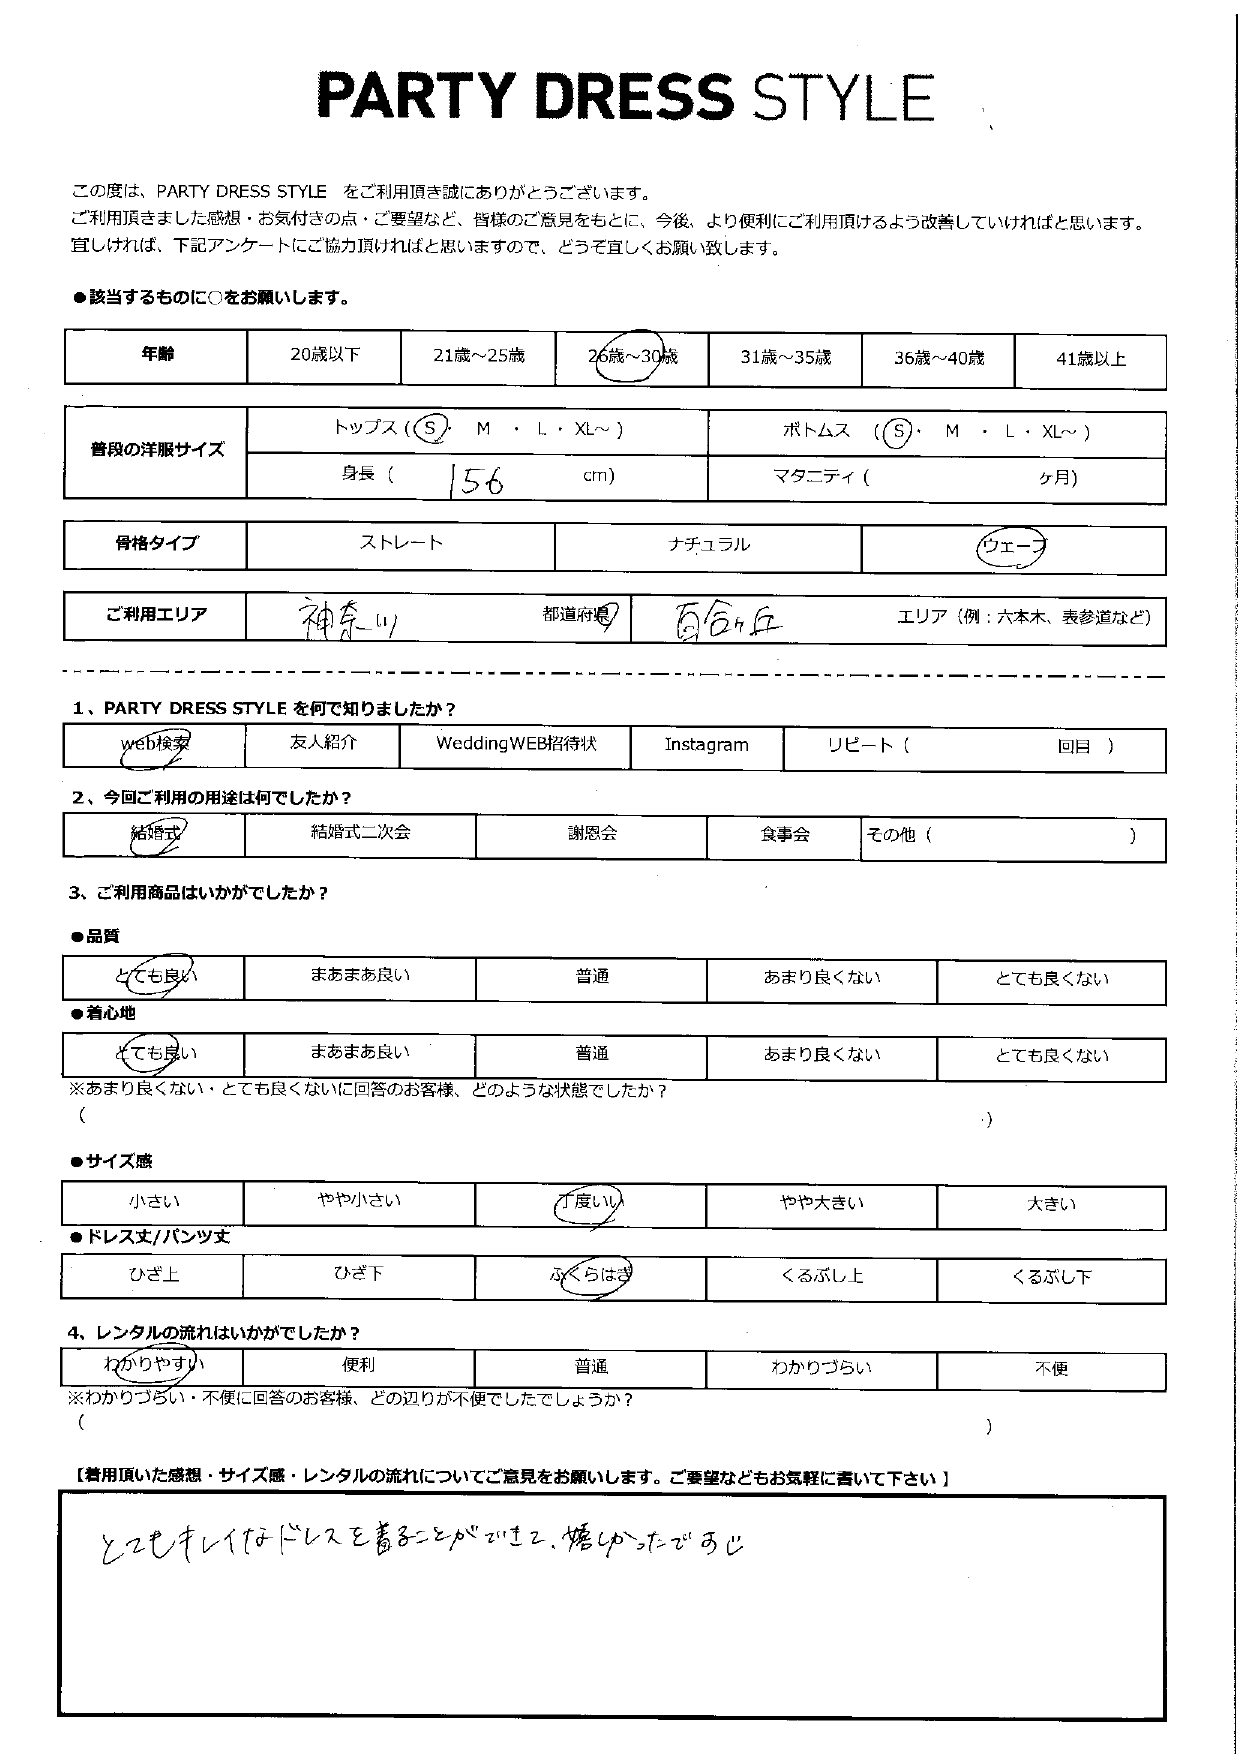 PARTY DRESS STYLE
この度は、PARTY DRESS STYLE をご利用頂き誠にありがとうございます。
ご利用頂きました感想・お気付きの点・ご要望など、皆様のご意見をもとに、今後、より便利にご利用頂けるよう改善していければと思います。
宜しければ、下記アンケートにご協力頂ければと思いますので、どうぞ宜しくお願い致します。
●該当するものに○をお願いします。
年齢 20歳以下 21歳～25歳 26歳～30歳 31歳～35歳 36歳～40歳 41歳以上
普段の洋服サイズ トップス (S・ M ・ L ・ XL～ ) ボトムス (S・ M ・ L ・ XL～ )
身長 ( 156 cm) マタニティ ( ヶ月)
骨格タイプ ストレート ナチュラル ウェーブ
ご利用エリア 神奈川 都道府県 百合ヶ丘 エリア（例：六本木、表参道など）
1、PARTY DRESS STYLE を何で知りましたか？
web検索 友人紹介 WeddingWEB招待状 Instagram リピート ( 回目 )
2、今回ご利用の用途は何でしたか？
結婚式 結婚式二次会 謝恩会 食事会 その他 ( )
3、ご利用商品はいかがでしたか？
●品質
とても良い まあまあ良い 普通 あまり良くない とても良くない
●着心地
とても良い まあまあ良い 普通 あまり良くない とても良くない
※あまり良くない・とても良くないに回答のお客様、どのような状態でしたか？
( )
●サイズ感
小さい やや小さい 丁度いい やや大きい 大きい
●ドレス丈/パンツ丈
ひざ上 ひざ下 ふくらはぎ くるぶし上 くるぶし下
4、レンタルの流れはいかがでしたか？
わかりやすい 便利 普通 わかりづらい 不便
※わかりづらい・不便に回答のお客様、どの辺りが不便でしたでしょうか？
( )
【着用頂いた感想・サイズ感・レンタルの流れについてご意見をお願いします。ご要望などもお気軽に書いて下さい】
とてもキレイなドレスを着ることができて、嬉しかったです